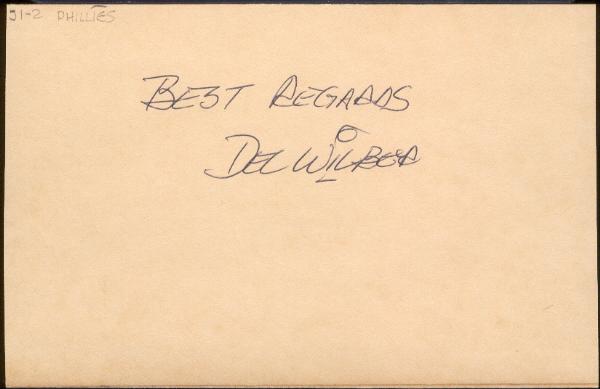 51-2 PHILLIES
BEST REGARDS
DEL WILBER